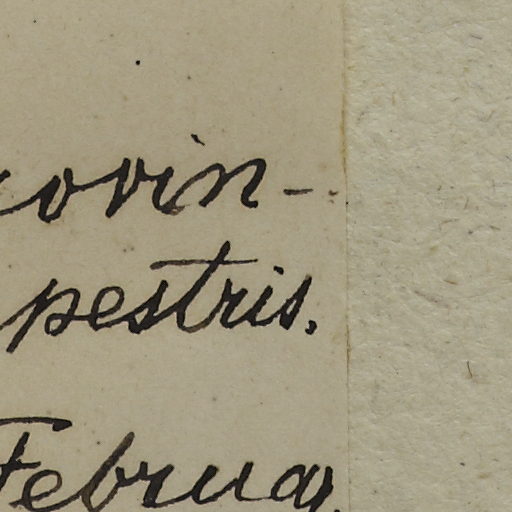 rovin-
pestris.
Februar